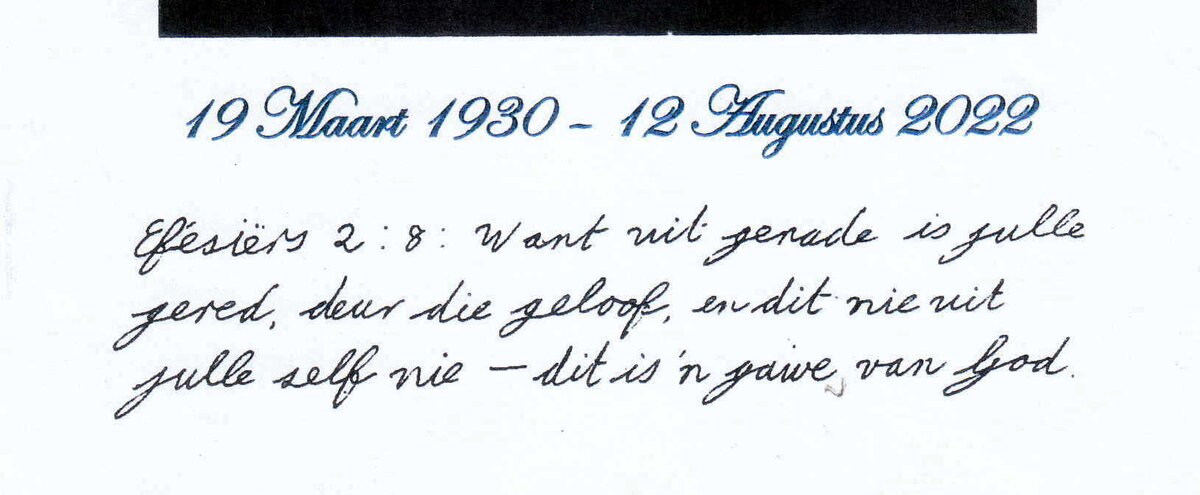 19 Maart 1930 - 12 Augustus 2022
Efésiërs 2 : 8 : Want uit genade is julle
gered, deur die geloof, en dit nie uit
julle self nie – dit is 'n gawe van God.